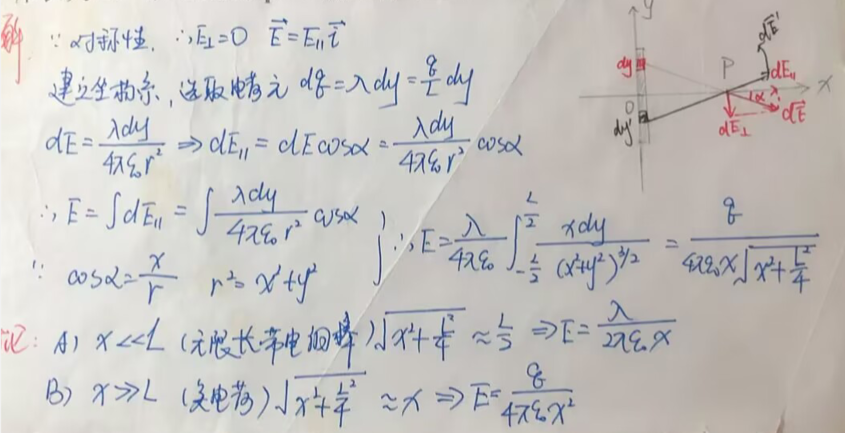 解 ∵ 对称性. ∴E⊥=0 E⃗=E∥i⃗
建立坐标系, 选取电荷元 dq=λdy=q/L dy
dE=λdy/4πε₀r² ⇒ dE∥=dEcosα=λdy/4πε₀r² cosα
∴ E=∫dE∥=∫λdy/4πε₀r² cosα
∵ cosα=x/r r²=x²+y²
∴E=λ/4πε₀ ∫_{-L/2}^{L/2} xdy/(x²+y²)^{3/2} = q/4πε₀x√(x²+L²/4)
记: A) x<<L (无限长带电细棒) √(x²+L²/4) ≈ L/2 ⇒E=λ/2πε₀x
B) x>>L (点电荷) √(x²+L²/4) ≈x ⇒ E=q/4πε₀x²
y
dE⃗'
dy
P
dE∥
x
α
O
dy'
dE⊥
dE⃗